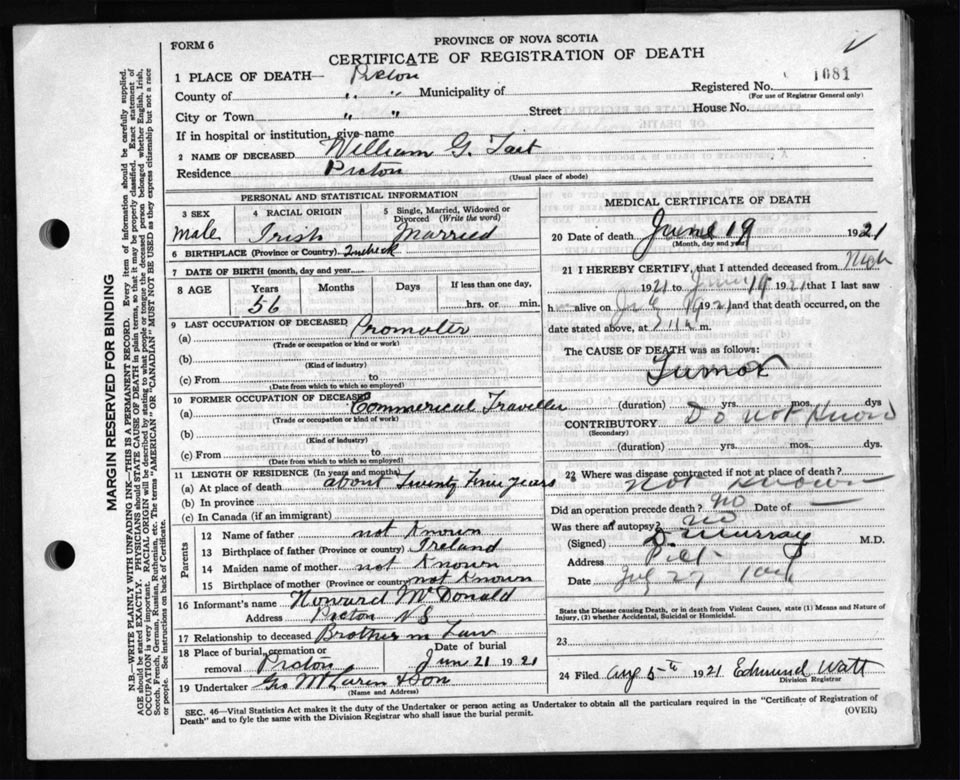 PROVINCE OF NOVA SCOTIA
FORM 6
CERTIFICATE OF REGISTRATION OF DEATH
1081
1 PLACE OF DEATH— Picton
Registered No.
(For use of Registrar General only)
County of " " Municipality of
City or Town " " Street House No.
If in hospital or institution, give name
2 NAME OF DECEASED William G. Tait
Residence Picton
(Usual place of abode)
PERSONAL AND STATISTICAL INFORMATION
3 SEX 4 RACIAL ORIGIN 5 Single, Married, Widowed or Divorced (Write the word)
Male Irish Married
6 BIRTHPLACE (Province or Country)
7 DATE OF BIRTH (month, day and year)
8 AGE Years Months Days If less than one day,
56 hrs. or min.
9 LAST OCCUPATION OF DECEASED
(a) Promoter
(Trade or occupation or kind or work)
(b)
(Kind of industry)
(c) From to
(Date from which to which so employed)
10 FORMER OCCUPATION OF DECEASED
(a) Commerical Traveller
(Trade or occupation or kind of work)
(b)
(Kind of industry)
(c) From to
(Date from which to which so employed)
11 LENGTH OF RESIDENCE (In years and months)
(a) At place of death about Twenty Five years
(b) In province
(c) In Canada (if an immigrant)
Parents
12 Name of father not Known
13 Birthplace of father (Province or country) Ireland
14 Maiden name of mother not Known
15 Birthplace of mother (Province or country) not Known
16 Informant's name Howard McDonald
Address Picton N S
17 Relationship to deceased Brother in Law
18 Place of burial, cremation or removal Picton Date of burial Jun 21 1921
19 Undertaker Geo McLaren & Son
(Name and Address)
MEDICAL CERTIFICATE OF DEATH
20 Date of death June 19 1921
(Month, day and year)
21 I HEREBY CERTIFY, that I attended deceased from
1921 to 19 1921 that I last saw
h alive on 19 1921 and that death occurred, on
date stated above, at m.
The CAUSE OF DEATH was as follows:
Tumor
(duration) yrs. mos. dys.
CONTRIBUTORY Do not Know
(Secondary)
(duration) yrs. mos. dys.
22 Where was disease contracted if not at place of death?
Not Known
Did an operation precede death? no Date of —
Was there an autopsy? no
(Signed) D. Murray M.D.
Address
Date 27
State the Disease causing Death, or in death from Violent Causes, state (1) Means and Nature of Injury, (2) whether Accidental, Suicidal or Homicidal.
23
24 Filed Aug 5th 1921 Edmund Watt
Division Registrar
SEC. 46—Vital Statistics Act makes it the duty of the Undertaker or person acting as Undertaker to obtain all the particulars required in the "Certificate of Registration of Death" and to fyle the same with the Division Registrar who shall issue the burial permit.
(OVER)
MARGIN RESERVED FOR BINDING
N.B.—WRITE PLAINLY WITH UNFADING INK—THIS IS A PERMANENT RECORD. Every item of information should be carefully supplied.
AGE should be stated EXACTLY. PHYSICIANS should STATE CAUSE OF DEATH in plain terms, so that it may be properly classified. Exact statement of
OCCUPATION is very important. RACIAL ORIGIN will be described by stating to what people or tongue the deceased person belonged whether English, Irish,
Scotch, French, German, Russian, Ruthenian, etc. The terms "AMERICAN" OR "CANADIAN" MUST NOT BE USED as they express citizenship but not a race
or people. See instructions on back of Certificate.